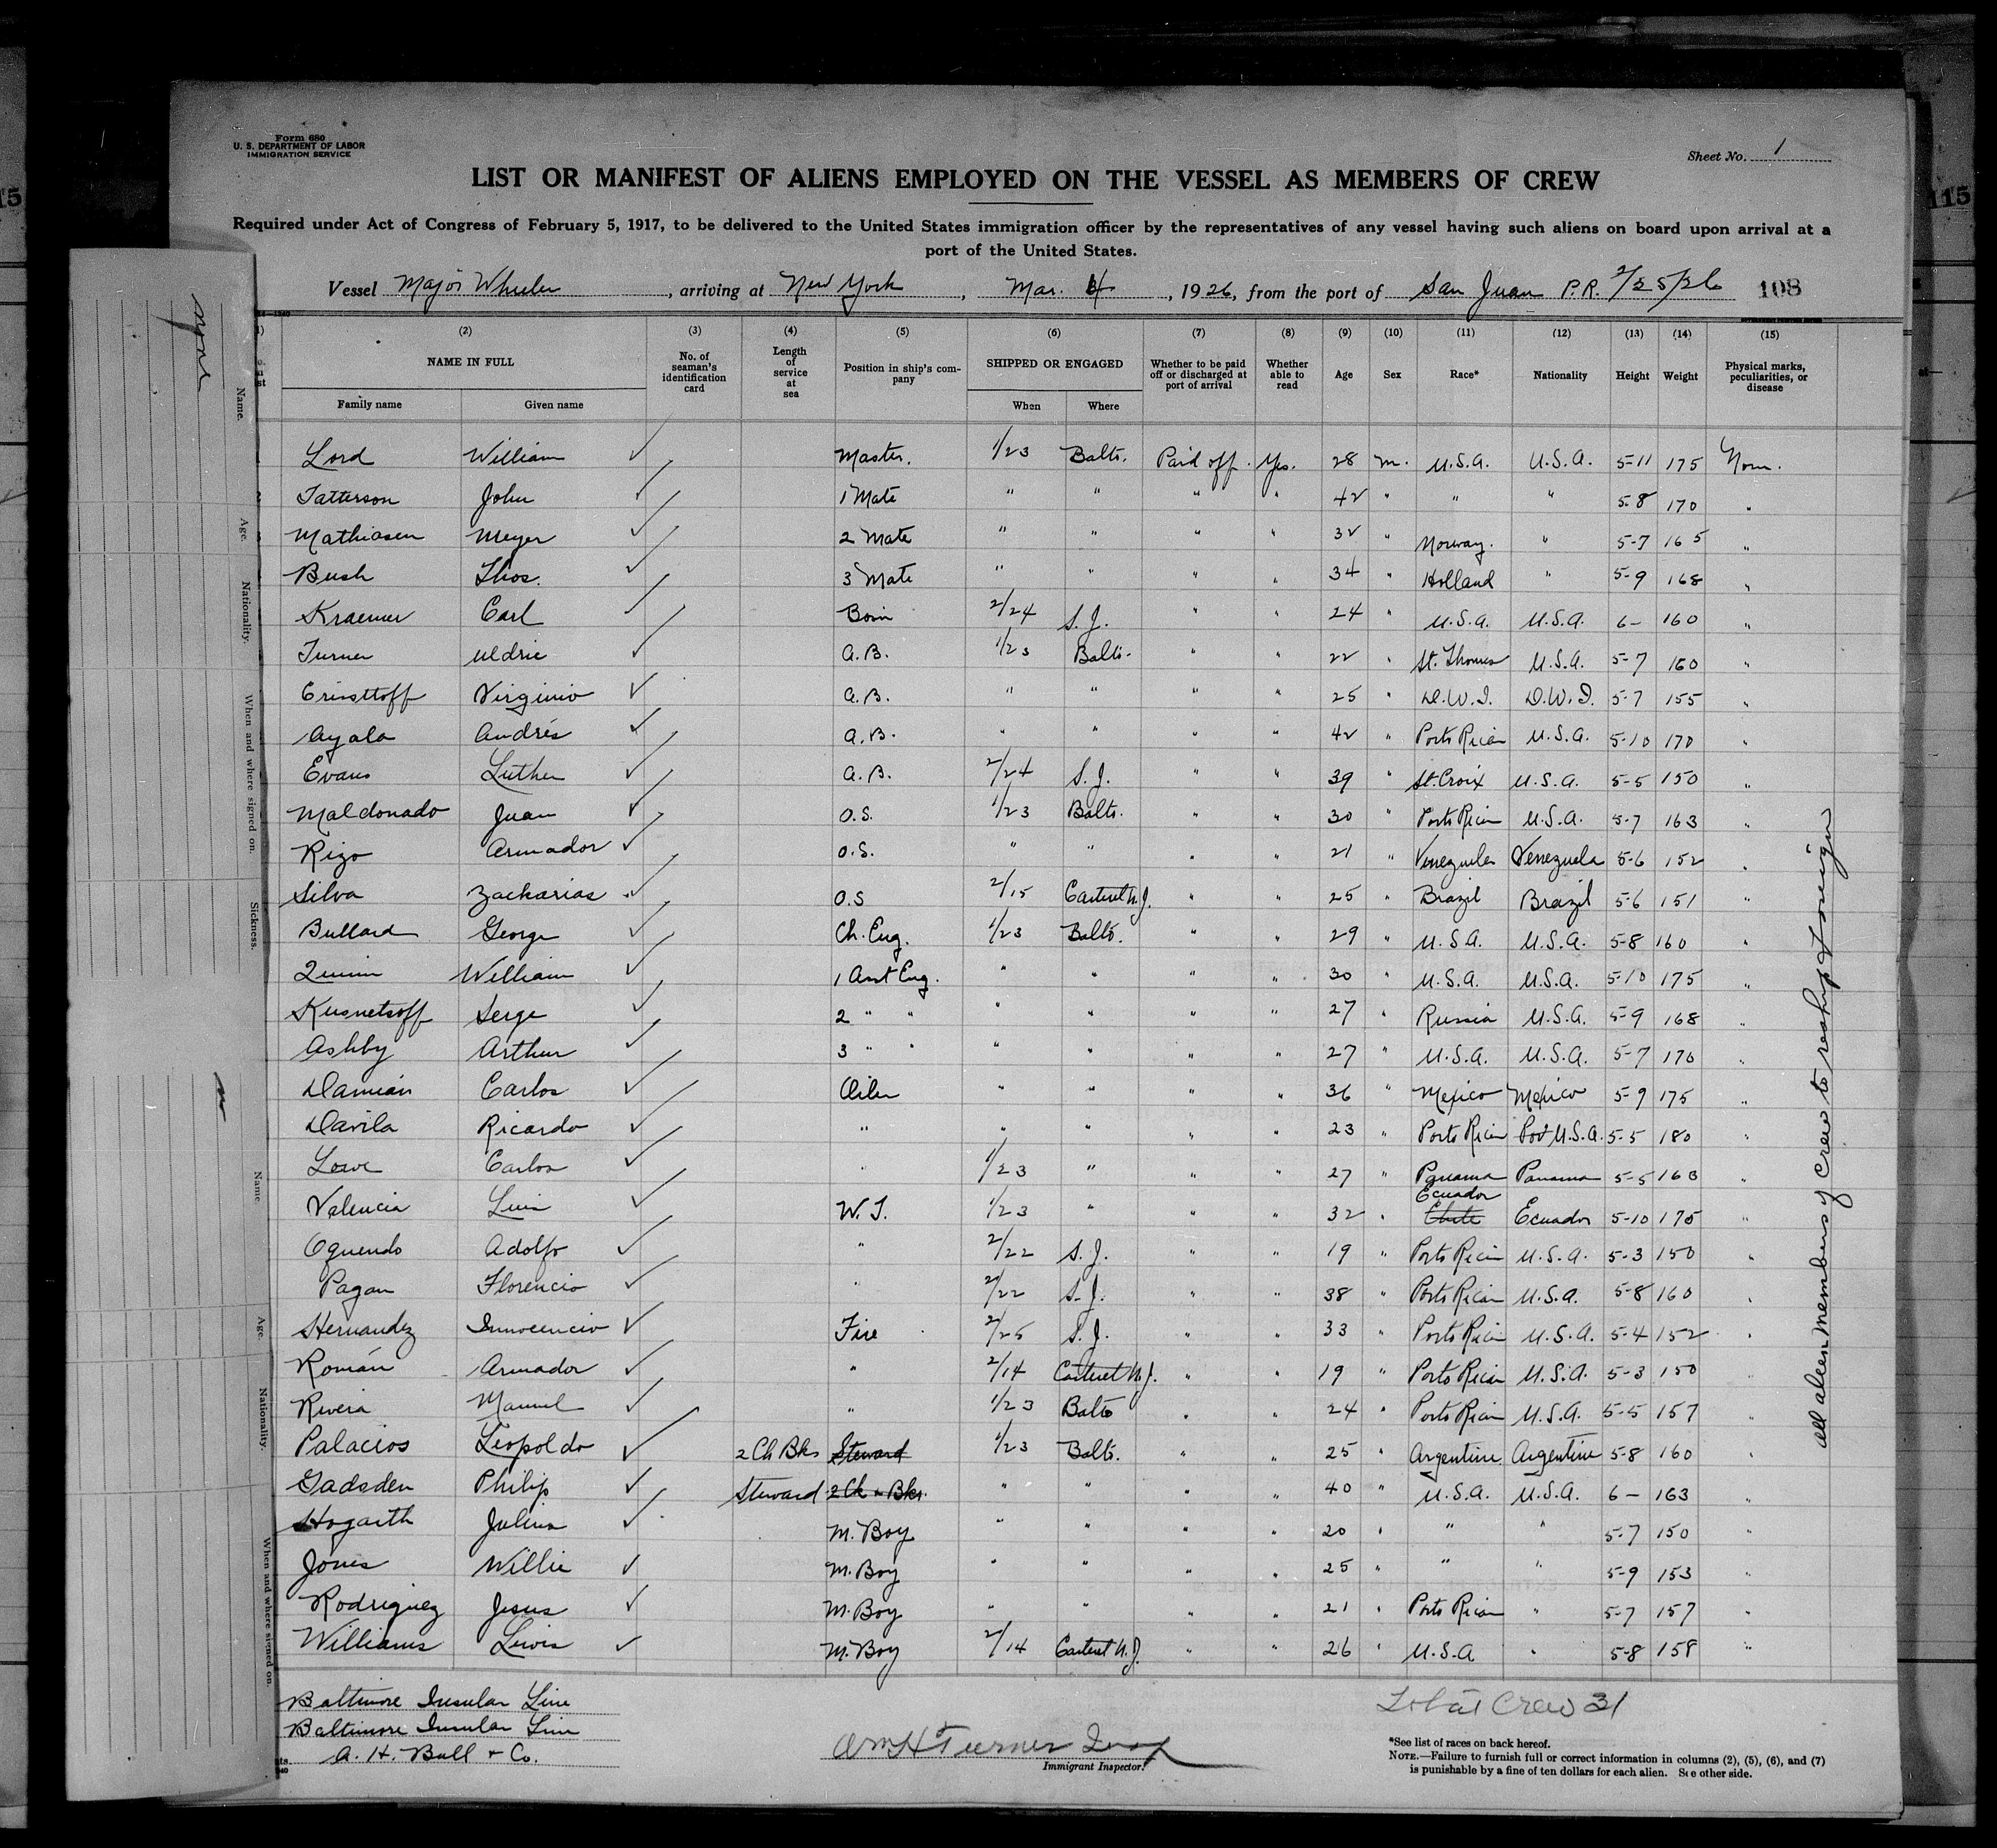 Form 680
U. S. DEPARTMENT OF LABOR
IMMIGRATION SERVICE
Sheet No. 1
LIST OR MANIFEST OF ALIENS EMPLOYED ON THE VESSEL AS MEMBERS OF CREW
Required under Act of Congress of February 5, 1917, to be delivered to the United States immigration officer by the representatives of any vessel having such aliens on board upon arrival at a
port of the United States.
Vessel Major Wheeler, arriving at New York, Mar. 4, 1926, from the port of San Juan P.R. 2/25/26 108
(1) (2) (3) (4) (5) (6) (7) (8) (9) (10) (11) (12) (13) (14) (15)
NAME IN FULL No. of seaman's identification card Length of service at sea Position in ship's company SHIPPED OR ENGAGED Whether to be paid off or discharged at port of arrival Whether able to read Age Sex Race* Nationality Height Weight Physical marks, peculiarities, or disease
Family name Given name When Where
Lord William ✓ Master. 1/23 Balto. Paid off. Yes. 28 M. U.S.A. U.S.A. 5-11 175 Non.
Tatterson John ✓ 1 Mate " " " " 42 " " " 5-8 170 "
Mathiasen Meyer ✓ 2 Mate " " " " 32 " Norway. " 5-7 165 "
Bush Thos. ✓ 3 Mate " " " " 34 " Holland " 5-9 168 "
Kraemer Carl ✓ Bosn 2/24 S.J. " " 24 " U.S.A. U.S.A. 6- 160 "
Turner Uldric ✓ A.B. 1/23 Balto. " " 22 " St. Thomas U.S.A. 5-7 160 "
Virginio ✓ A.B. " " " " 25 " D.W.I. D.W.I. 5-7 155 "
Ayala Andrés ✓ A.B. " " " " 42 " Porto Rican U.S.A. 5-10 170 "
Evans Luther ✓ A.B. 2/24 S.J. " " 39 " St. Croix U.S.A. 5-5 150 "
Maldonado Juan ✓ O.S. 1/23 Balto. " " 30 " Porto Rican U.S.A. 5-7 163 "
Rizo Armador ✓ O.S. " " " " 21 " Venezuela Venezuela 5-6 152 "
Silva Zackarias ✓ O.S 2/15 Carteret N.J. " " 25 " Brazil Brazil 5-6 151 "
Bullard George ✓ Ch. Eng. 1/23 Balto. " " 29 " U.S.A. U.S.A. 5-8 160 "
Quinn William ✓ 1 Asst Eng. " " " " 30 " U.S.A. U.S.A. 5-10 175 "
Kusnetsoff Serge ✓ 2 " " " " " " 27 " Russia U.S.A. 5-9 168 "
Ashby Arthur ✓ 3 " " " " " " 27 " U.S.A. U.S.A. 5-7 170 "
Damián Carlos ✓ Oiler " " " " 36 " Mexico Mexico 5-9 175 "
Davila Ricardo ✓ " " " " " 23 " Porto Rican U.S.A. 5-5 180 "
Lowe Carlos ✓ " 1/23 " " " 27 " Panama Panama 5-5 163 "
Valencia Luis ✓ W.T. 1/23 " " " 32 " Chile Ecuador Ecuador 5-10 175 "
Oquendo Adolfo ✓ " 2/22 S.J. " " 19 " Porto Rican U.S.A. 5-3 150 "
Pagan Florencio ✓ " 2/22 S.J. " " 38 " Porto Rican U.S.A. 5-8 160 "
Hernandez Innocencio ✓ Fire 2/25 S.J. " " 33 " Porto Rican U.S.A. 5-4 152 "
Román Armador ✓ " 2/14 Carteret N.J. " " 19 " Porto Rican U.S.A. 5-3 150
Rivera Manuel ✓ " 1/23 Balto " " 24 " Porto Rican U.S.A. 5-5 157 "
Palacios Leopoldo ✓ 2 Ck Bkr Steward 1/23 Balto. " " 25 " Argentine Argentine 5-8 160 "
Gadsden Philip ✓ Steward 2 Ck & Bkr. " " " " 40 " U.S.A. U.S.A. 6- 163 "
Hogarth Julius ✓ M. Boy " " " " 20 " " " 5-7 150 "
Jones Willie ✓ M. Boy " " " " 25 " " " 5-9 153 "
Rodriguez Jesus ✓ M. Boy " " " " 21 " Porto Rican " 5-7 157 "
Williams Lewis ✓ M. Boy 2/14 Carteret N.J. " " 26 " U.S.A " 5-8 158 "
All alien members of crew to reship foreign
Baltimore Insular Line
Baltimore Insular Line
A. H. Bull & Co.
Wm H Turner Insp
Immigrant Inspector.
Total Crew 31
*See list of races on back hereof.
NOTE.—Failure to furnish full or correct information in columns (2), (5), (6), and (7)
is punishable by a fine of ten dollars for each alien. See other side.
Name.
Age.
Nationality.
When and where signed on.
Sickness.
Name.
Age.
Nationality.
When and where signed on.
115